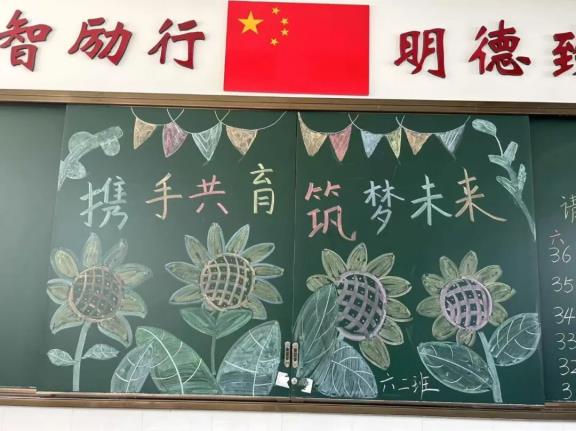 智励行 明德致
携手共育 筑梦未来
六二班
六
36
35
34
33
32